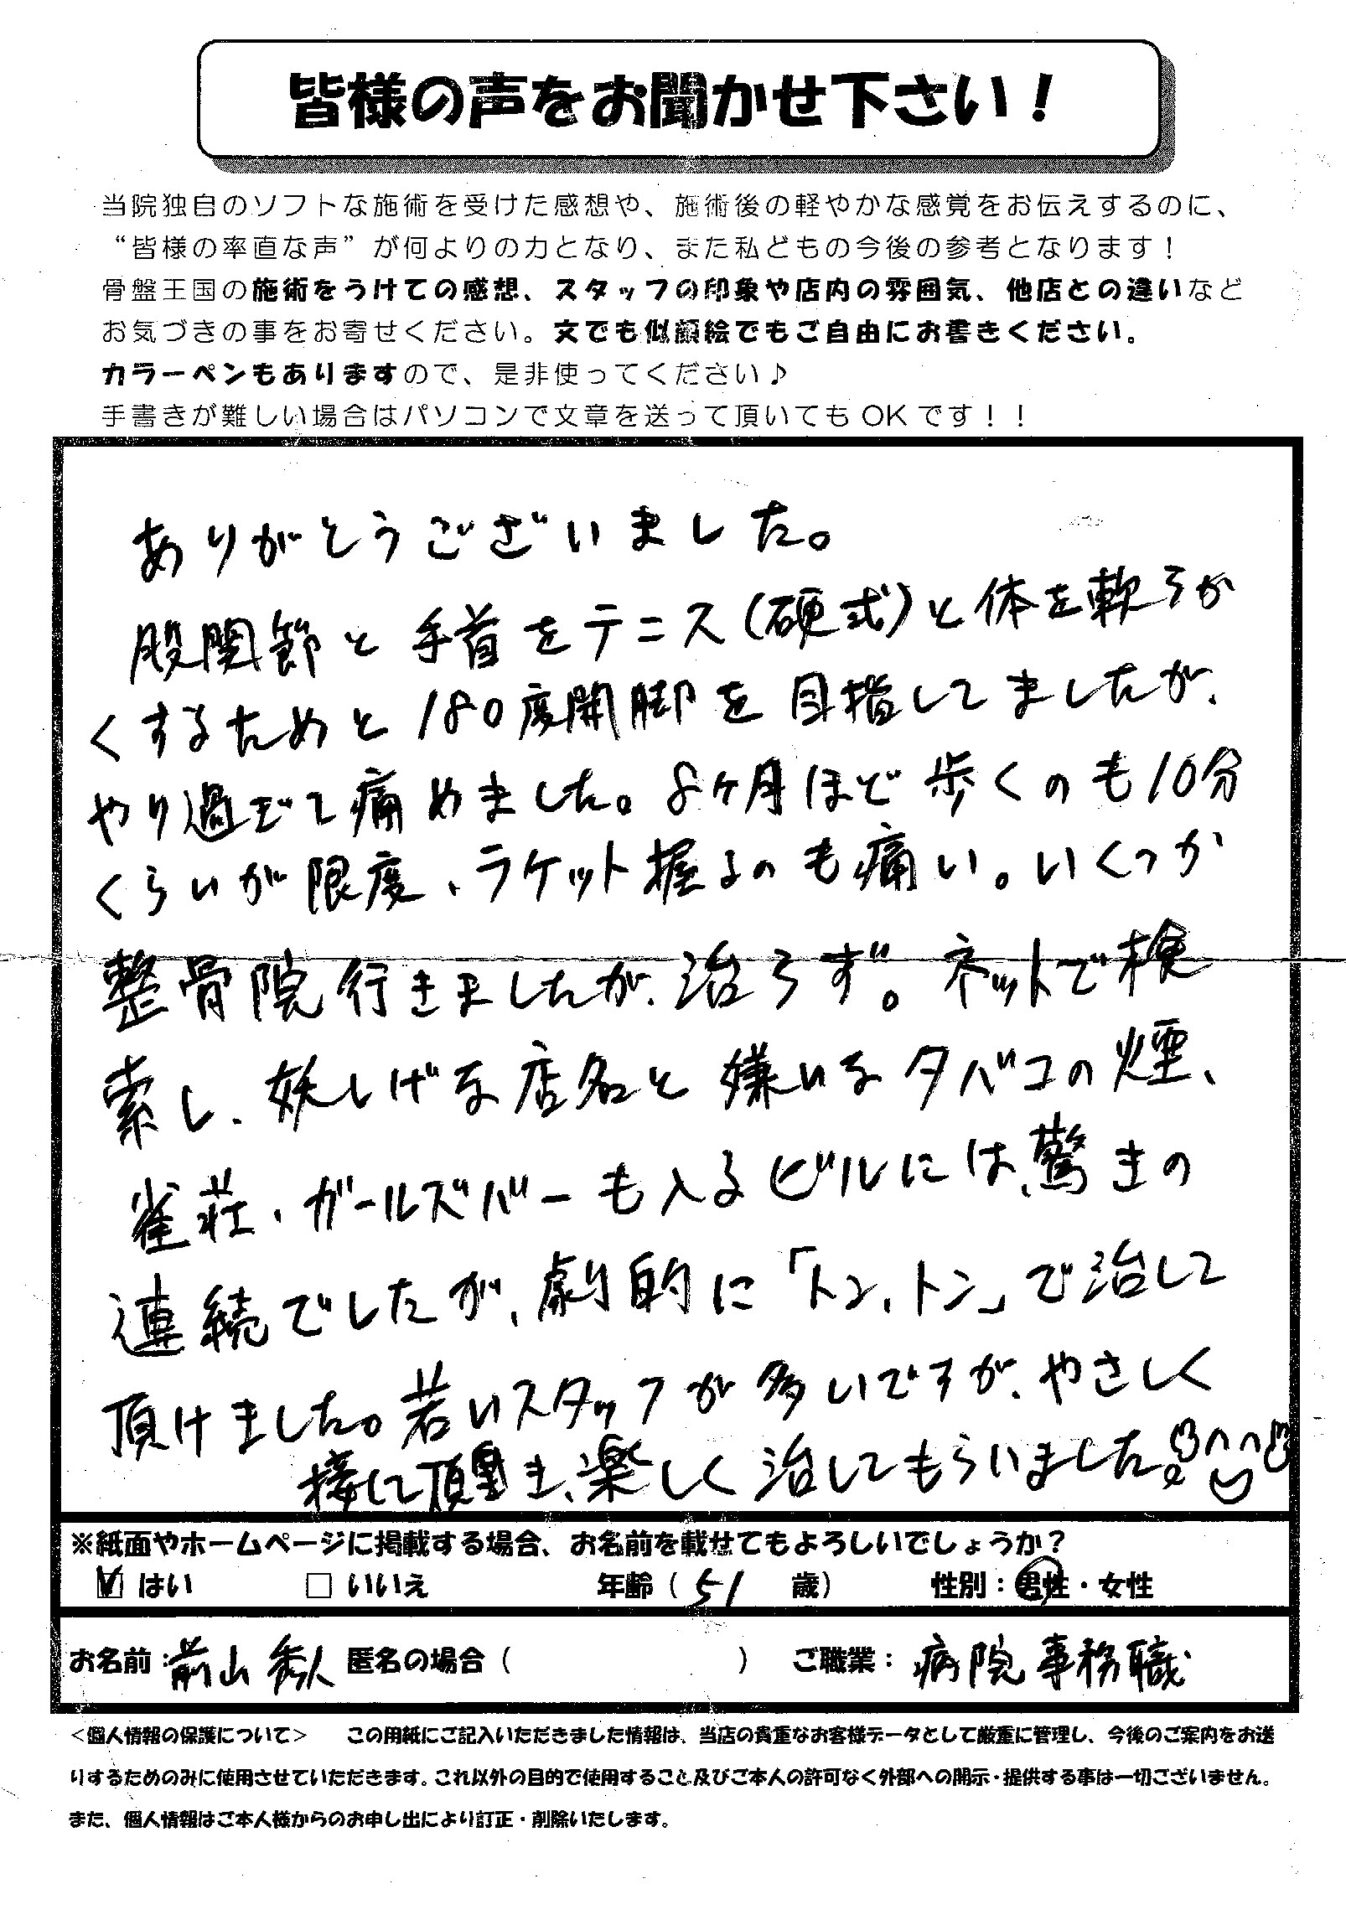 皆様の声をお聞かせ下さい！
当院独自のソフトな施術を受けた感想や、施術後の軽やかな感覚をお伝えするのに、
“皆様の率直な声”が何よりの力となり、また私どもの今後の参考となります！
骨盤王国の施術をうけての感想、スタッフの印象や店内の雰囲気、他店との違いなど
お気づきの事をお寄せください。文でも似顔絵でもご自由にお書きください。
カラーペンもありますので、是非使ってください♪
手書きが難しい場合はパソコンで文章を送って頂いてもOKです！！
ありがとうございました。
股関節と手首をテニス(硬式)と体を軟らか
くするためと180度開脚を目指してましたが、
やり過ぎて痛めました。8ヶ月ほど歩くのも10分
くらいが限度、ラケット握るのも痛い。いくつか
整骨院行きましたが、治らず。ネットで検
索し、妖しげな店名と嫌いなタバコの煙、
雀荘、ガールズバーも入るビルには、驚きの
連続でしたが、劇的に「トン、トン」で治して
頂けました。若いスタッフが多いですが、やさしく
接して頂き、楽しく治してもらいました。
※紙面やホームページに掲載する場合、お名前を載せてもよろしいでしょうか？
☑ はい □ いいえ 年齢（ 51 歳） 性別：男性・女性
お名前：前山秀人 匿名の場合（ ） ご職業：病院事務職
＜個人情報の保護について＞ この用紙にご記入いただきました情報は、当店の貴重なお客様データとして厳重に管理し、今後のご案内をお送
りするためのみに使用させていただきます。これ以外の目的で使用すること及びご本人の許可なく外部への開示・提供する事は一切ございません。
また、個人情報はご本人様からのお申し出により訂正・削除いたします。